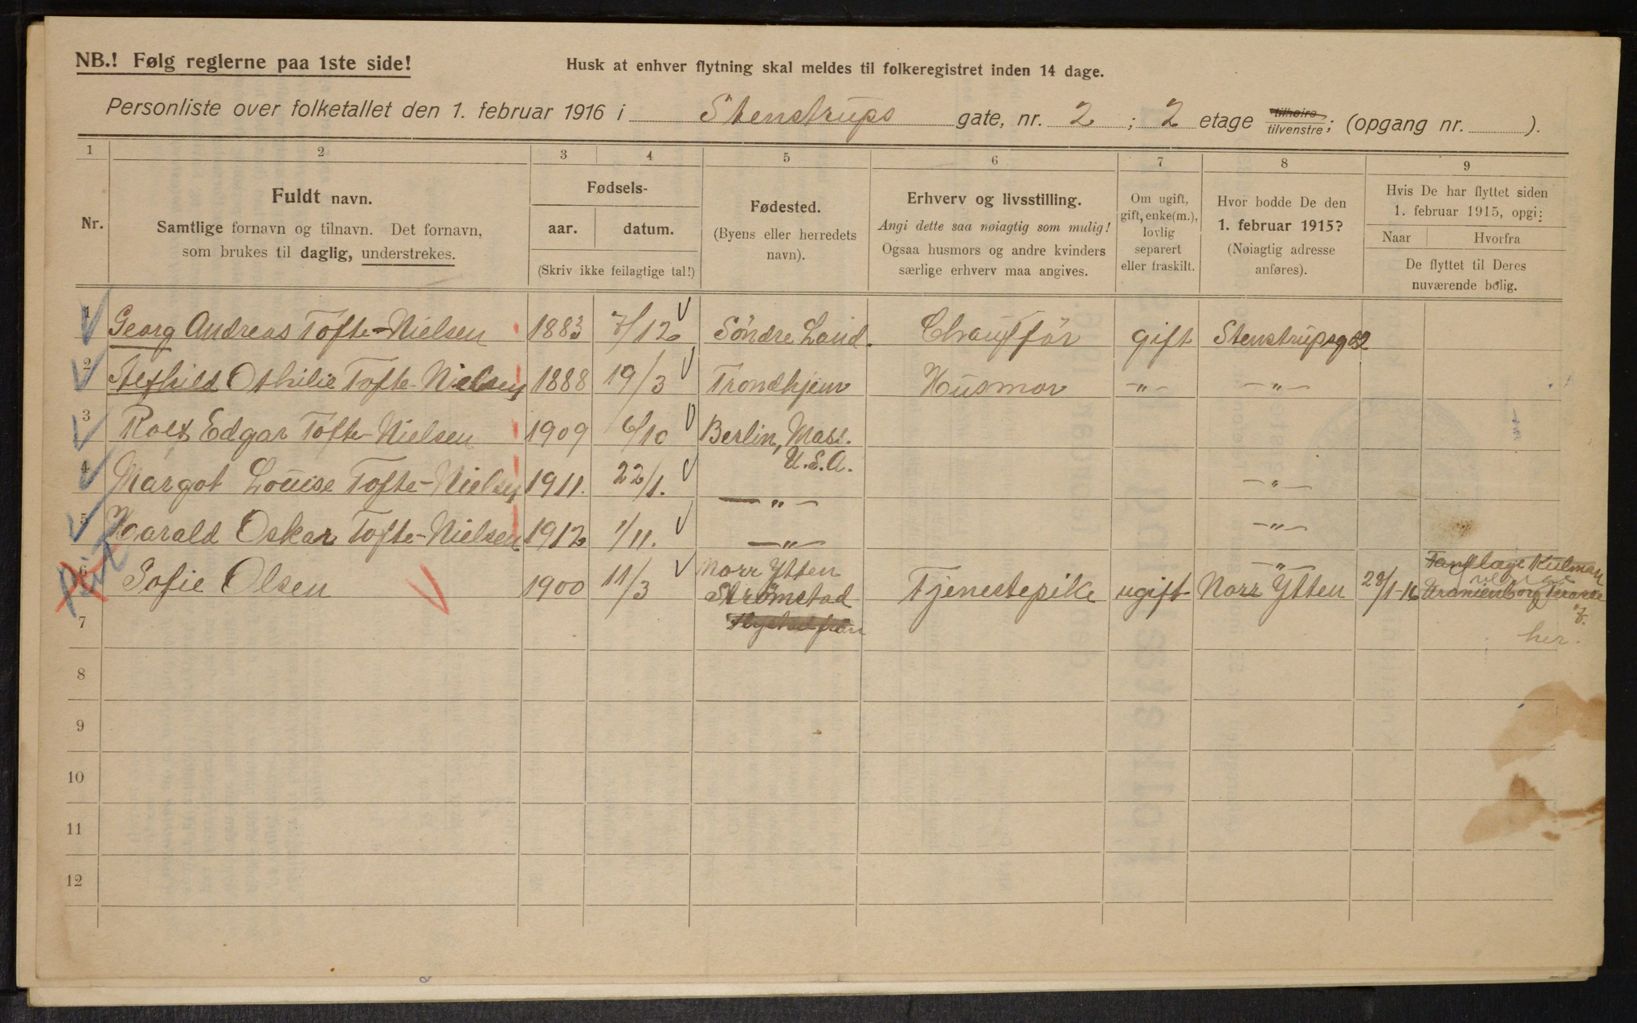 NB.! Følg reglerne paa 1ste side!
Husk at enhver flytning skal meldes til folkeregistret inden 14 dage.
Personliste over folketallet den 1. februar 1916 i Stenstrups gate, nr. 2 ; 2 etage tilhøire tilvenstre; (opgang nr. ).
1 2 3 4 5 6 7 8 9
Nr.
Fuldt navn.
Samtlige fornavn og tilnavn. Det fornavn,
som brukes til daglig, understrekes.
Fødsels-
aar. datum.
(Skriv ikke feilagtige tal!)
Fødested.
(Byens eller herredets
navn).
Erhverv og livsstilling.
Angi dette saa nøiagtig som mulig!
Ogsaa husmors og andre kvinders
særlige erhverv maa angives.
Om ugift,
gift, enke(m.),
lovlig
separert
eller fraskilt.
Hvor bodde De den
1. februar 1915?
(Nøiagtig adresse
anføres).
Hvis De har flyttet siden
1. februar 1915, opgi:
Naar Hvorfra
De flyttet til Deres
nuværende bolig.
1 Georg Andreas Tofte-Nielsen 1883 7/12 Söndre Land. Chaufför gift Stenstrupsg 2
2 Alfhild Othilie Tofte-Nielsen 1888 19/3 Trondhjem Husmor -„- -„-
3 Rolf Edgar Tofte-Nielsen 1909 6/10 Berlin, Mass.
U.S.A.
4 Margot Louise Tofte-Nielsen 1911. 22/1. -„- -„-
5 Harald Oskar Tofte-Nielsen 1912 1/11. -„- -„-
6 Sofie Olsen 1900 11/3 Norr Ytten
Strømstad Tjenestepike ugift Norr Ytten 28/1-16
her.
7
8
9
10
11
12